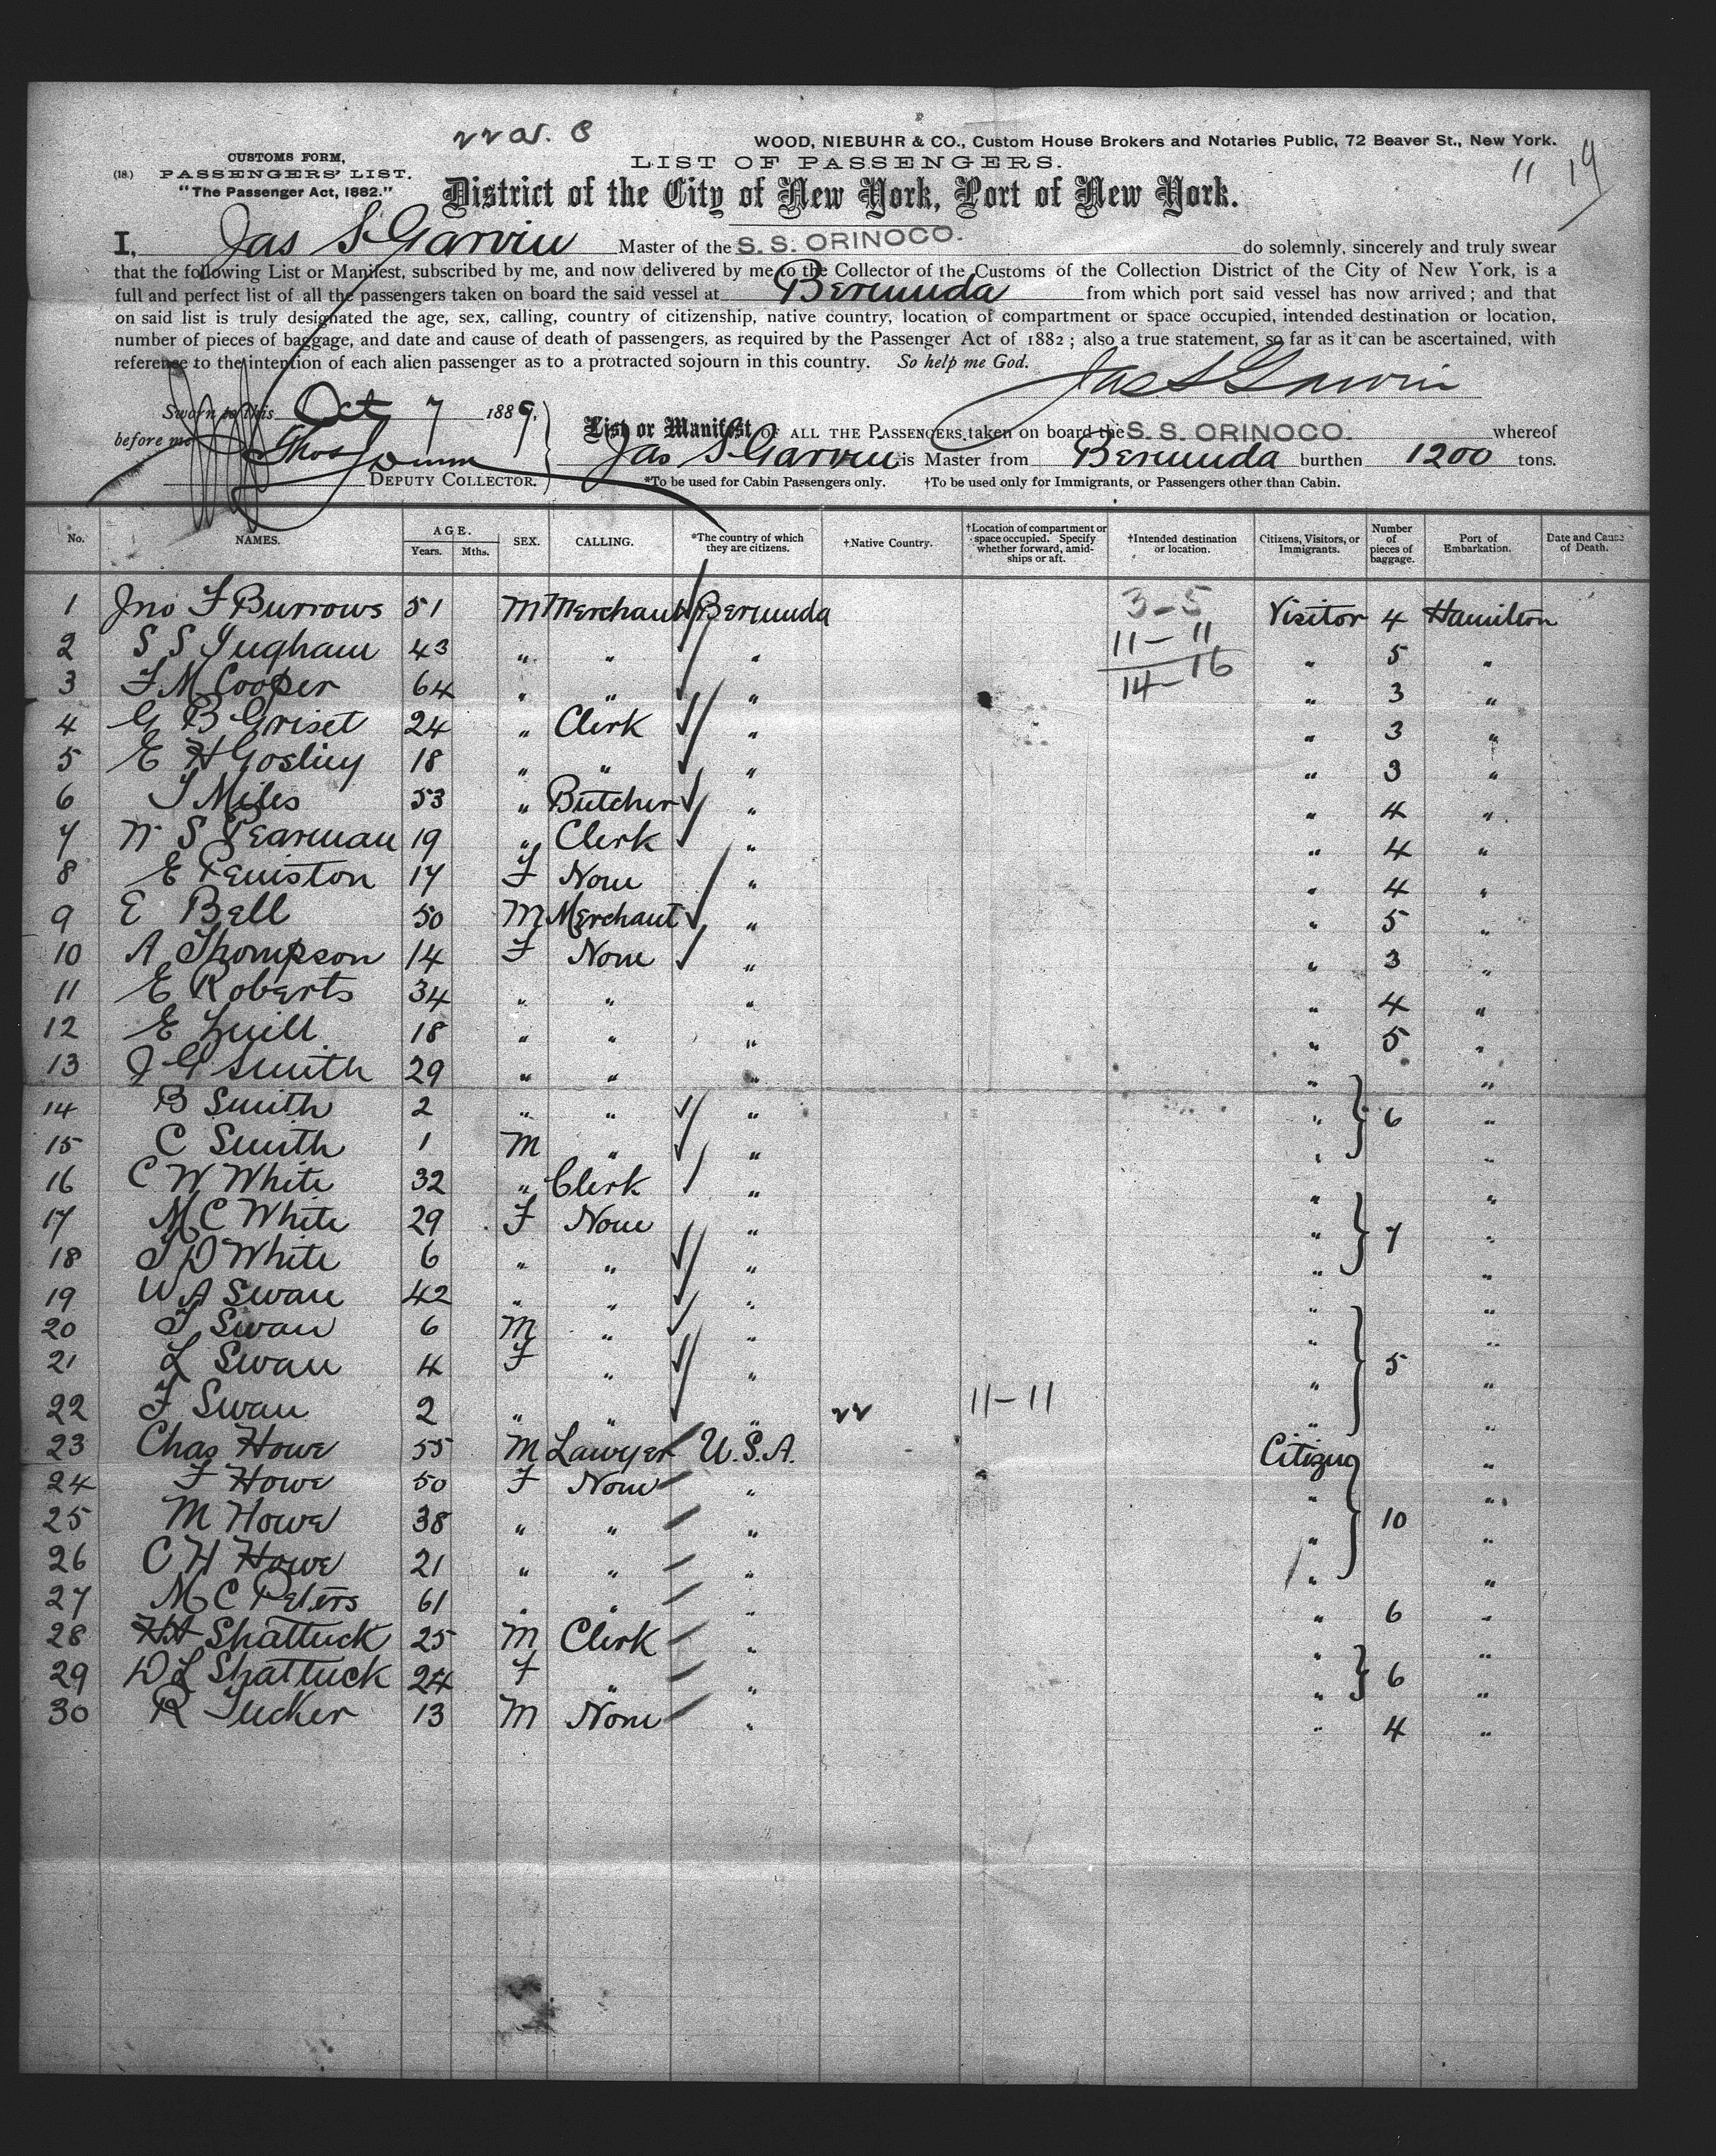 WOOD, NIEBUHR & CO., Custom House Brokers and Notaries Public, 72 Beaver St., New York.
CUSTOMS FORM,
(18.) PASSENGERS' LIST.
"The Passenger Act, 1882."
LIST OF PASSENGERS.
11 19
District of the City of New York, Port of New York.
I, Jas S Garvin Master of the S. S. ORINOCO. do solemnly, sincerely and truly swear
that the following List or Manifest, subscribed by me, and now delivered by me to the Collector of the Customs of the Collection District of the City of New York, is a
full and perfect list of all the passengers taken on board the said vessel at Bermuda from which port said vessel has now arrived; and that
on said list is truly designated the age, sex, calling, country of citizenship, native country, location of compartment or space occupied, intended destination or location,
number of pieces of baggage, and date and cause of death of passengers, as required by the Passenger Act of 1882; also a true statement, so far as it can be ascertained, with
reference to the intention of each alien passenger as to a protracted sojourn in this country. So help me God.
Jas S Garvin
Sworn to this Oct 7 1889,
before me Thos Dunn
DEPUTY COLLECTOR.
List or Manifest OF ALL THE PASSENGERS taken on board the S. S. ORINOCO. whereof
Jas S Garvin is Master from Bermuda burthen 1200 tons.
*To be used for Cabin Passengers only. †To be used only for Immigrants, or Passengers other than Cabin.
No. NAMES. AGE. Years. Mths. SEX. CALLING. *The country of which they are citizens. †Native Country. †Location of compartment or space occupied. Specify whether forward, amidships or aft. †Intended destination or location. Citizens, Visitors, or Immigrants. Number of pieces of baggage. Port of Embarkation. Date and Cause of Death.
1 Jno F Burrows 51 M Merchant Bermuda 3-5 Visitor 4 Hamilton
2 S S Ingham 43 " " " 11-11 " 5 "
3 F M Cooper 64 " " " 14-16 " 3 "
4 G B Griset 24 " Clerk " " 3 "
5 E H Gosling 18 " " " " 3 "
6 J Miles 53 " Butcher " " 4 "
7 W S Pearman 19 " Clerk " " 4 "
8 E Peniston 17 F None " " 4 "
9 E Bell 50 M Merchant " " 5 "
10 A Thompson 14 F None " " 3 "
11 E Roberts 34 " " " " 4 "
12 E Zuill 18 " " " " 5 "
13 J G Smith 29 " " " " "
14 B Smith 2 " " " " 6 "
15 C Smith 1 M " " " "
16 C W White 32 " Clerk " " "
17 M C White 29 F None " " 7 "
18 T D White 6 " " " " "
19 W A Swan 42 " " " " "
20 T Swan 6 M " " " "
21 L Swan 4 F " " " 5 "
22 F Swan 2 " " " 11-11 " "
23 Chas Howe 55 M Lawyer U.S.A. Citizen "
24 F Howe 50 F None " " "
25 M Howe 38 " " " " 10 "
26 C H Howe 21 " " " " "
27 M C Peters 61 " " " " 6 "
28 H A Shattuck 25 M Clerk " " "
29 D L Shattuck 24 F " " " 6 "
30 R Tucker 13 M None " " 4 "